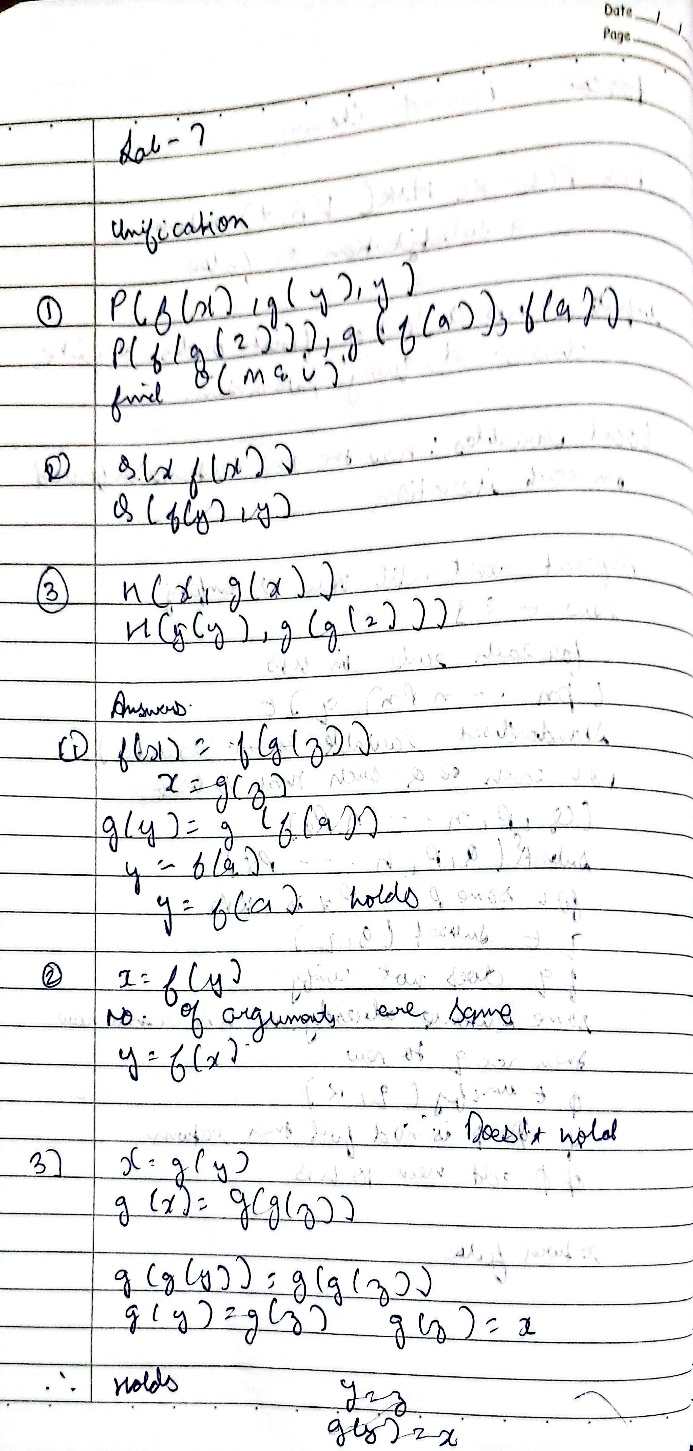 Date
Page
Lab - 7
Unification
① P(f(x), g(y), y)
P(f(g(z))), g(f(a)), f(a)).
find θ(MGU)
② Q(x f(x))
Q(f(y), y)
③ H(x, g(x))
H(g(y), g(g(z)))
Answers.
① f(x) = f(g(z))
x = g(z)
g(y) = g(f(a))
y = f(a).
y = f(a). holds
② x = f(y)
no. of arguments are same
y = f(x)
∴ Doesn't hold
3) x = g(y)
g(x) = g(g(z))
g(g(y)) = g(g(z))
g(y) = g(z) g(z) = x
∴ Holds y=z
g(z) = x